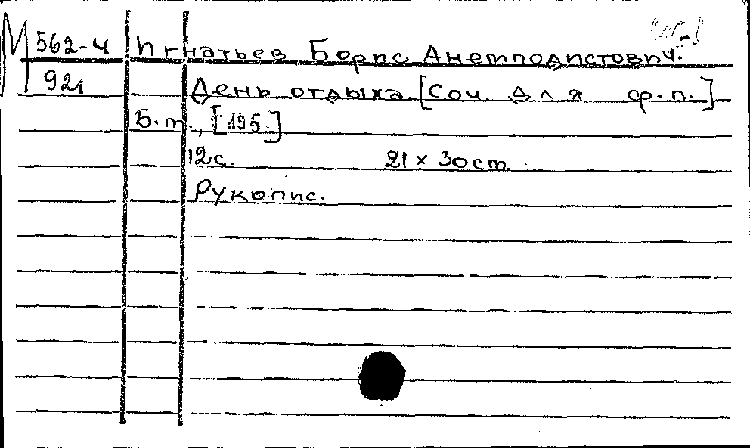 М 562-4 Игнатьев Борис Анемподистович.
921 День отдыха [Соч. для ф.п.]
Б.м., [195.]
12с. 21 x 30ст.
Рукопис.